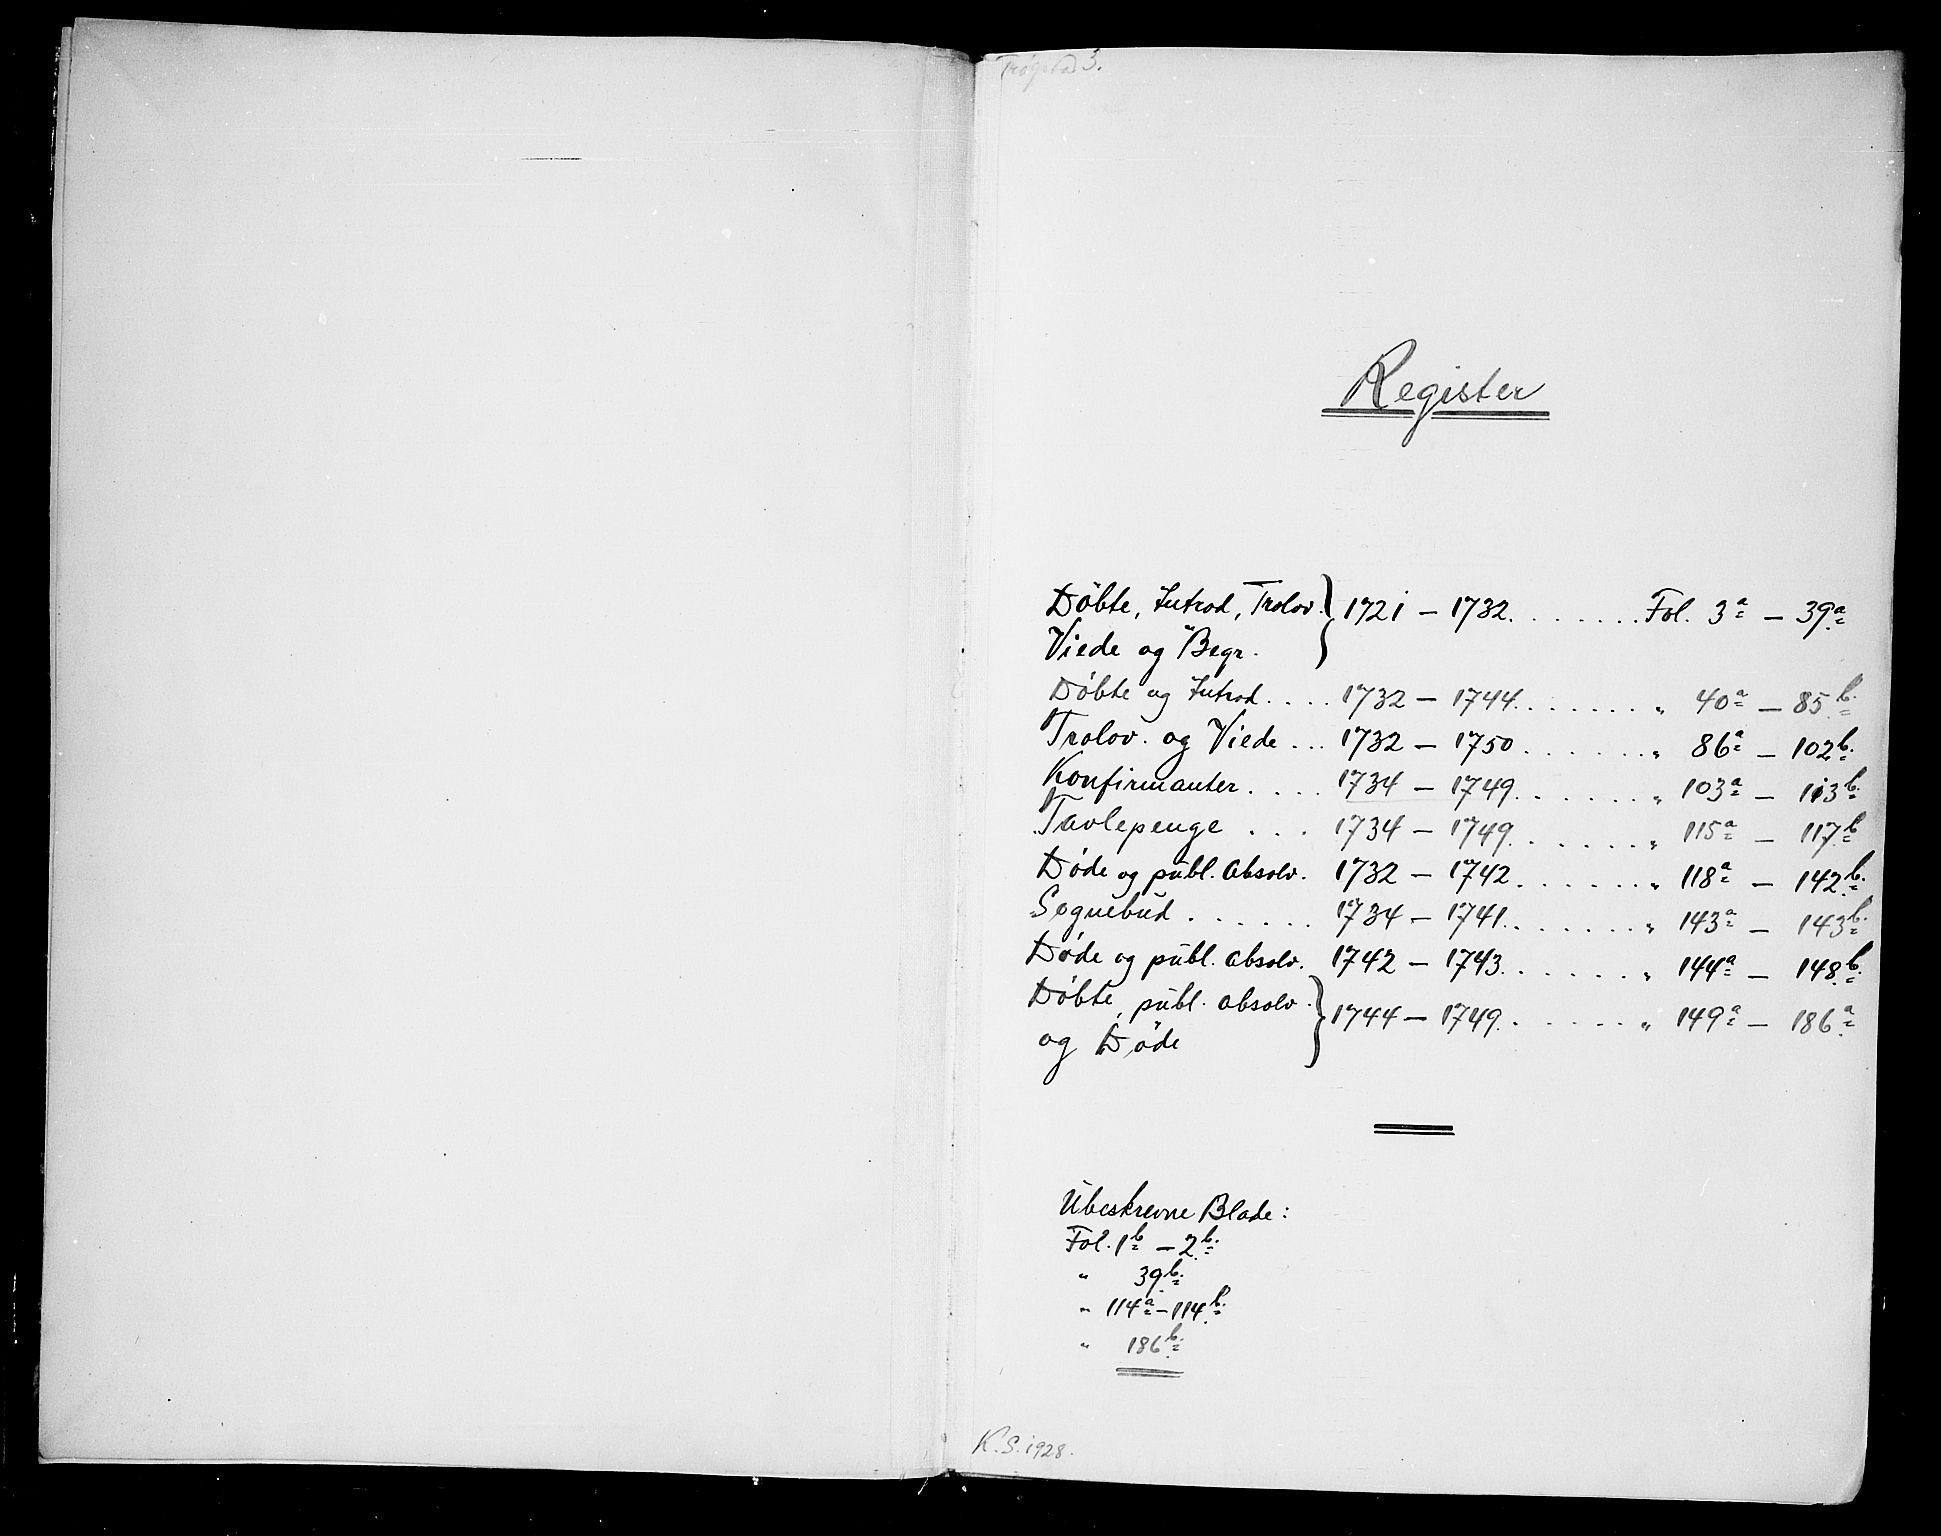 Trøgstad 3.
Register
Döbte, Introd, Trolov. } 1721 – 1732. . . . . . . . Fol. 3a – 39a
Viede og Begr.
Döbte og Introd. . . . . 1732 – 1744. . . . . . . . „ 40a – 85b.
Trolov. og Viede . . . 1732 – 1750 . . . . . . . „ 86a – 102b.
Konfirmanter . . . . 1734 – 1749. . . . . . . „ 103a – 113b.
Tavlepenge . . . 1734 – 1749. . . . . . . „ 115a – 117b
Döde og publ. absolv. 1732 – 1742. . . . . . . „ 118a – 142b.
Sognebud . . . . . . 1734 – 1741. . . . . . . „ 143a – 143b.
Döde og publ. absolv. 1742 – 1743. . . . . . . „ 144a – 148b.
Döbte, publ. absolv. } 1744 – 1749. . . . . . . „ 149a – 186a
og Döde
Ubeskrevne Blade:
Fol. 1b – 2b.
„ 39b.
„ 114a – 114b.
„ 186b.
K.S. 1928.